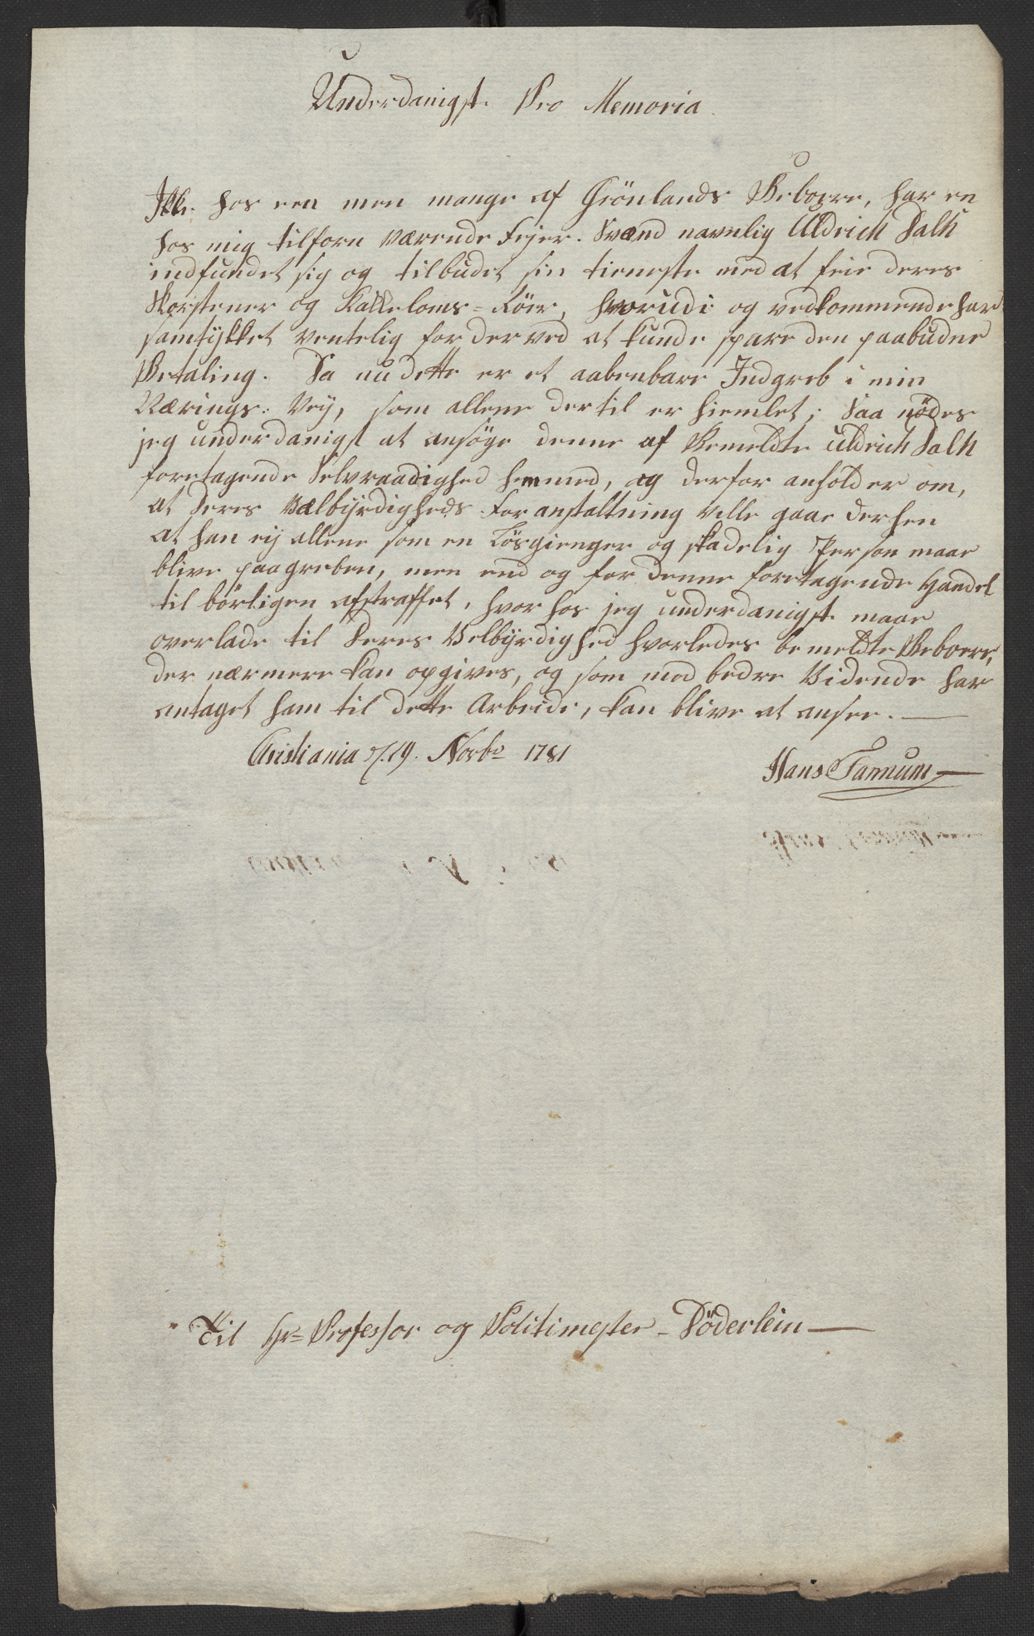 Underdanigst Pro Memoria
Ikke hos een men mange af Grönlands Beboere, har en
hos mig tilforn værende Fejer-Svænd navnlig Uldrich Dalk
indfundet sig og tilbudet sin tieneste med at feie deres
Skorstener og Kakkelovns-Röer, hvorudi og vedkommende har
samtÿkket ventelig for derved at kunde spare den paabudne
Betaling. Da nu dette er et aabenbare Indgreb i min
Nærings-Vej, som allene dertil er hiemlet; Saa nödes
jeg underdanigst at ansöge denne af Bemeldte Uldrich Dalk
foretagende Selvraadighed hemmed, og derfor anholder om,
at Deres Vælbÿrdigheds Foranstaltning ville gaae derhen
at han ej allene som en Lösgienger og skadelig Person maae
blive paagreben, men end og for denne foretagende Handel
til börligen afstraffet, hvorhos jeg underdanigst maae
overlade til Deres Velbÿrdighed hvorledes bemeldte Beboere,
der nærmere kan opgives, og som mod bedre Vidende har
antaget ham til dette Arbeide, kan blive at ansee.
Christiania d. 19. Novbr 1781
Hans Farnum
Til Hr Professor og Politimester Döderlein